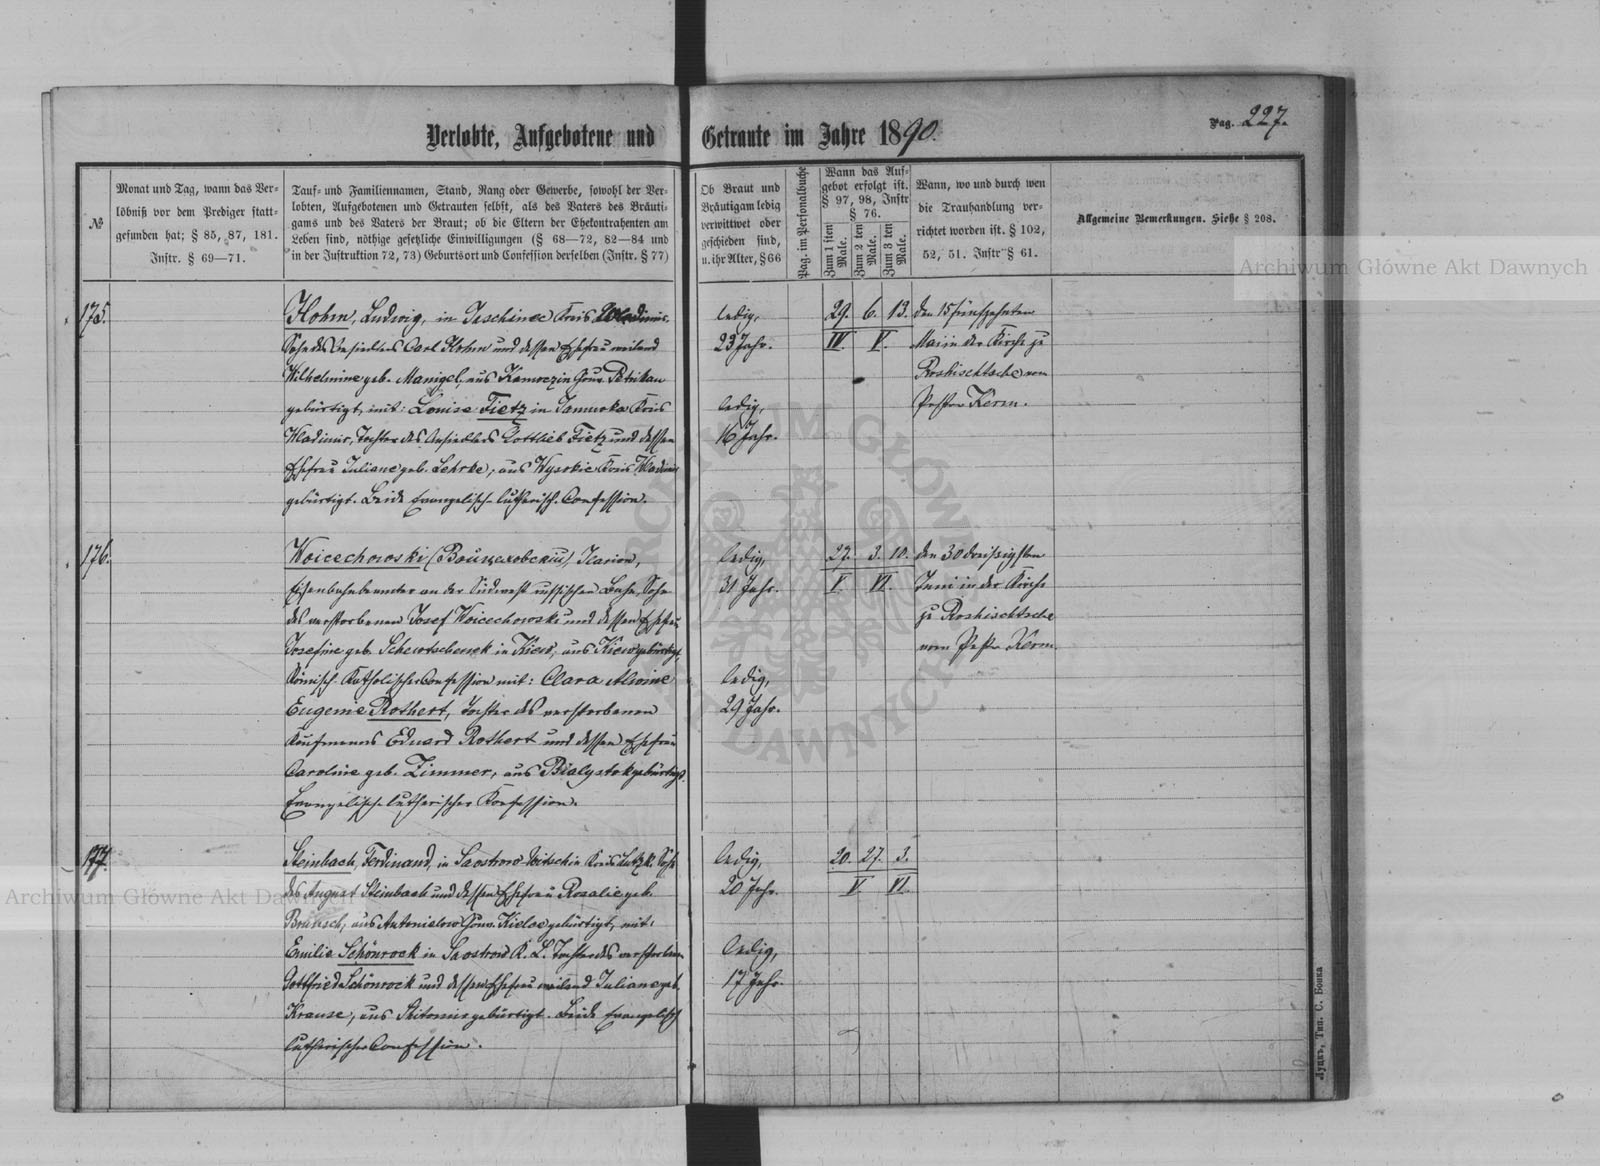 Verlobte, Aufgebotene und Getraute im Jahre 1890.
Pag. 227.
№
Monat und Tag, wann das Ver-
löbniß vor dem Prediger statt-
gefunden hat; § 85, 87, 181.
Instr. § 69—71.
Tauf- und Familiennamen, Stand, Rang oder Gewerbe, sowohl der Ver-
lobten, Aufgebotenen und Getrauten selbst, als des Vaters des Bräuti-
gams und des Vaters der Braut; ob die Eltern der Ehekontrahenten am
Leben sind, nöthige gesetzliche Einwilligungen (§ 68—72, 82—84 und
in der Instruktion 72, 73) Geburtsort und Confession derselben (Instr. § 77)
Ob Braut und
Bräutigam ledig
verwittwet oder
geschieden sind,
u. ihr Alter, § 66
Pag. im Personalbuche
Wann das Auf-
gebot erfolgt ist.
§ 97, 98, Instr
§ 76.
Zum 1 sten Male.
Zum 2 ten Male.
Zum 3 ten Male.
Wann, wo und durch wen
die Trauhandlung ver-
richtet worden ist. § 102,
52, 51. Instr § 61.
Allgemeine Bemerkungen. Siehe § 208.
175.
Hohm, Ludwig, in Kreis Wladimir.
Sohn des Ansiedlers Carl Hohm und dessen Ehefrau weiland
Wilhelmine geb. Manigel, aus Gouv. Petrikau
gebürtigt, mit: Louise Fietz in Janowka Kreis
Wladimir, Tochter des Ansiedlers Gottlieb Fietz und dessen
Ehefrau Juliane geb. Lehrke, aus Wysokie Kreis Wladimir
gebürtigt. Beide Evangelisch-lutherisch. Confession.
ledig,
23 Jahr.
ledig,
16 Jahr.
29. 6. 13.
IV. V.
den 15 fünfzehnten
Mai in der Kirche zu
Roshischtsche vom
Pastor Kerm.
176.
Woicechowski (Войцеховскiй) Ilarion,
Eisenbahnbeamter an der Südwest russischen Bahn, Sohn
des verstorbenen Josef Woicechowski und dessen Ehefrau
Josefine geb. Schewtschenek in Kiew, aus Kiew gebürtigt,
Römisch-Katholischer Confession mit: Clara Alwine
Eugenie Rothert, Tochter des verstorbenen
Kaufmanns Eduard Rothert und dessen Ehefrau
Caroline geb. Zimmer, aus Bialystok gebürtigt.
Evangelisch lutherischer Konfession.
ledig,
31 Jahr.
ledig,
29 Jahr.
27. 3. 10.
V. VI.
den 30 dreißigsten
Juni in der Kirche
zu Roshischtsche
vom Pastor Kerm.
177.
Steinbach, Ferdinand, in Kreis Lutzk. Sohn
des August Steinbach und dessen Ehefrau Rosalie geb.
aus Antonielow Gouv. Kielce gebürtigt, mit:
Emilie Schönrock in Saostrow K. L. Tochter des verstorbenen
Gottfried Schönrock und dessen Ehefrau weiland Juliane geb.
Krause, aus gebürtigt. Beide Evangelisch
lutherischer Confession.
ledig,
20 Jahr.
ledig,
17 Jahr.
20. 27. 3.
V. VI.
Луцкъ, Тип. С. Бонка
Archiwum Główne Akt Dawnych
Archiwum Główne Akt Dawnych
ARCHIWUM GŁÓWNE AKT DAWNYCH